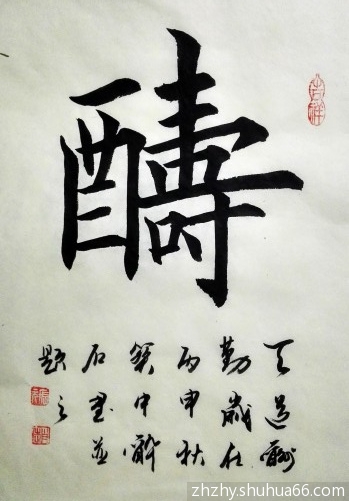 醻
吉祥
天道酬
勤歲在
丙申秋
中
石書並
題之
zhzhy.shuhua66.com